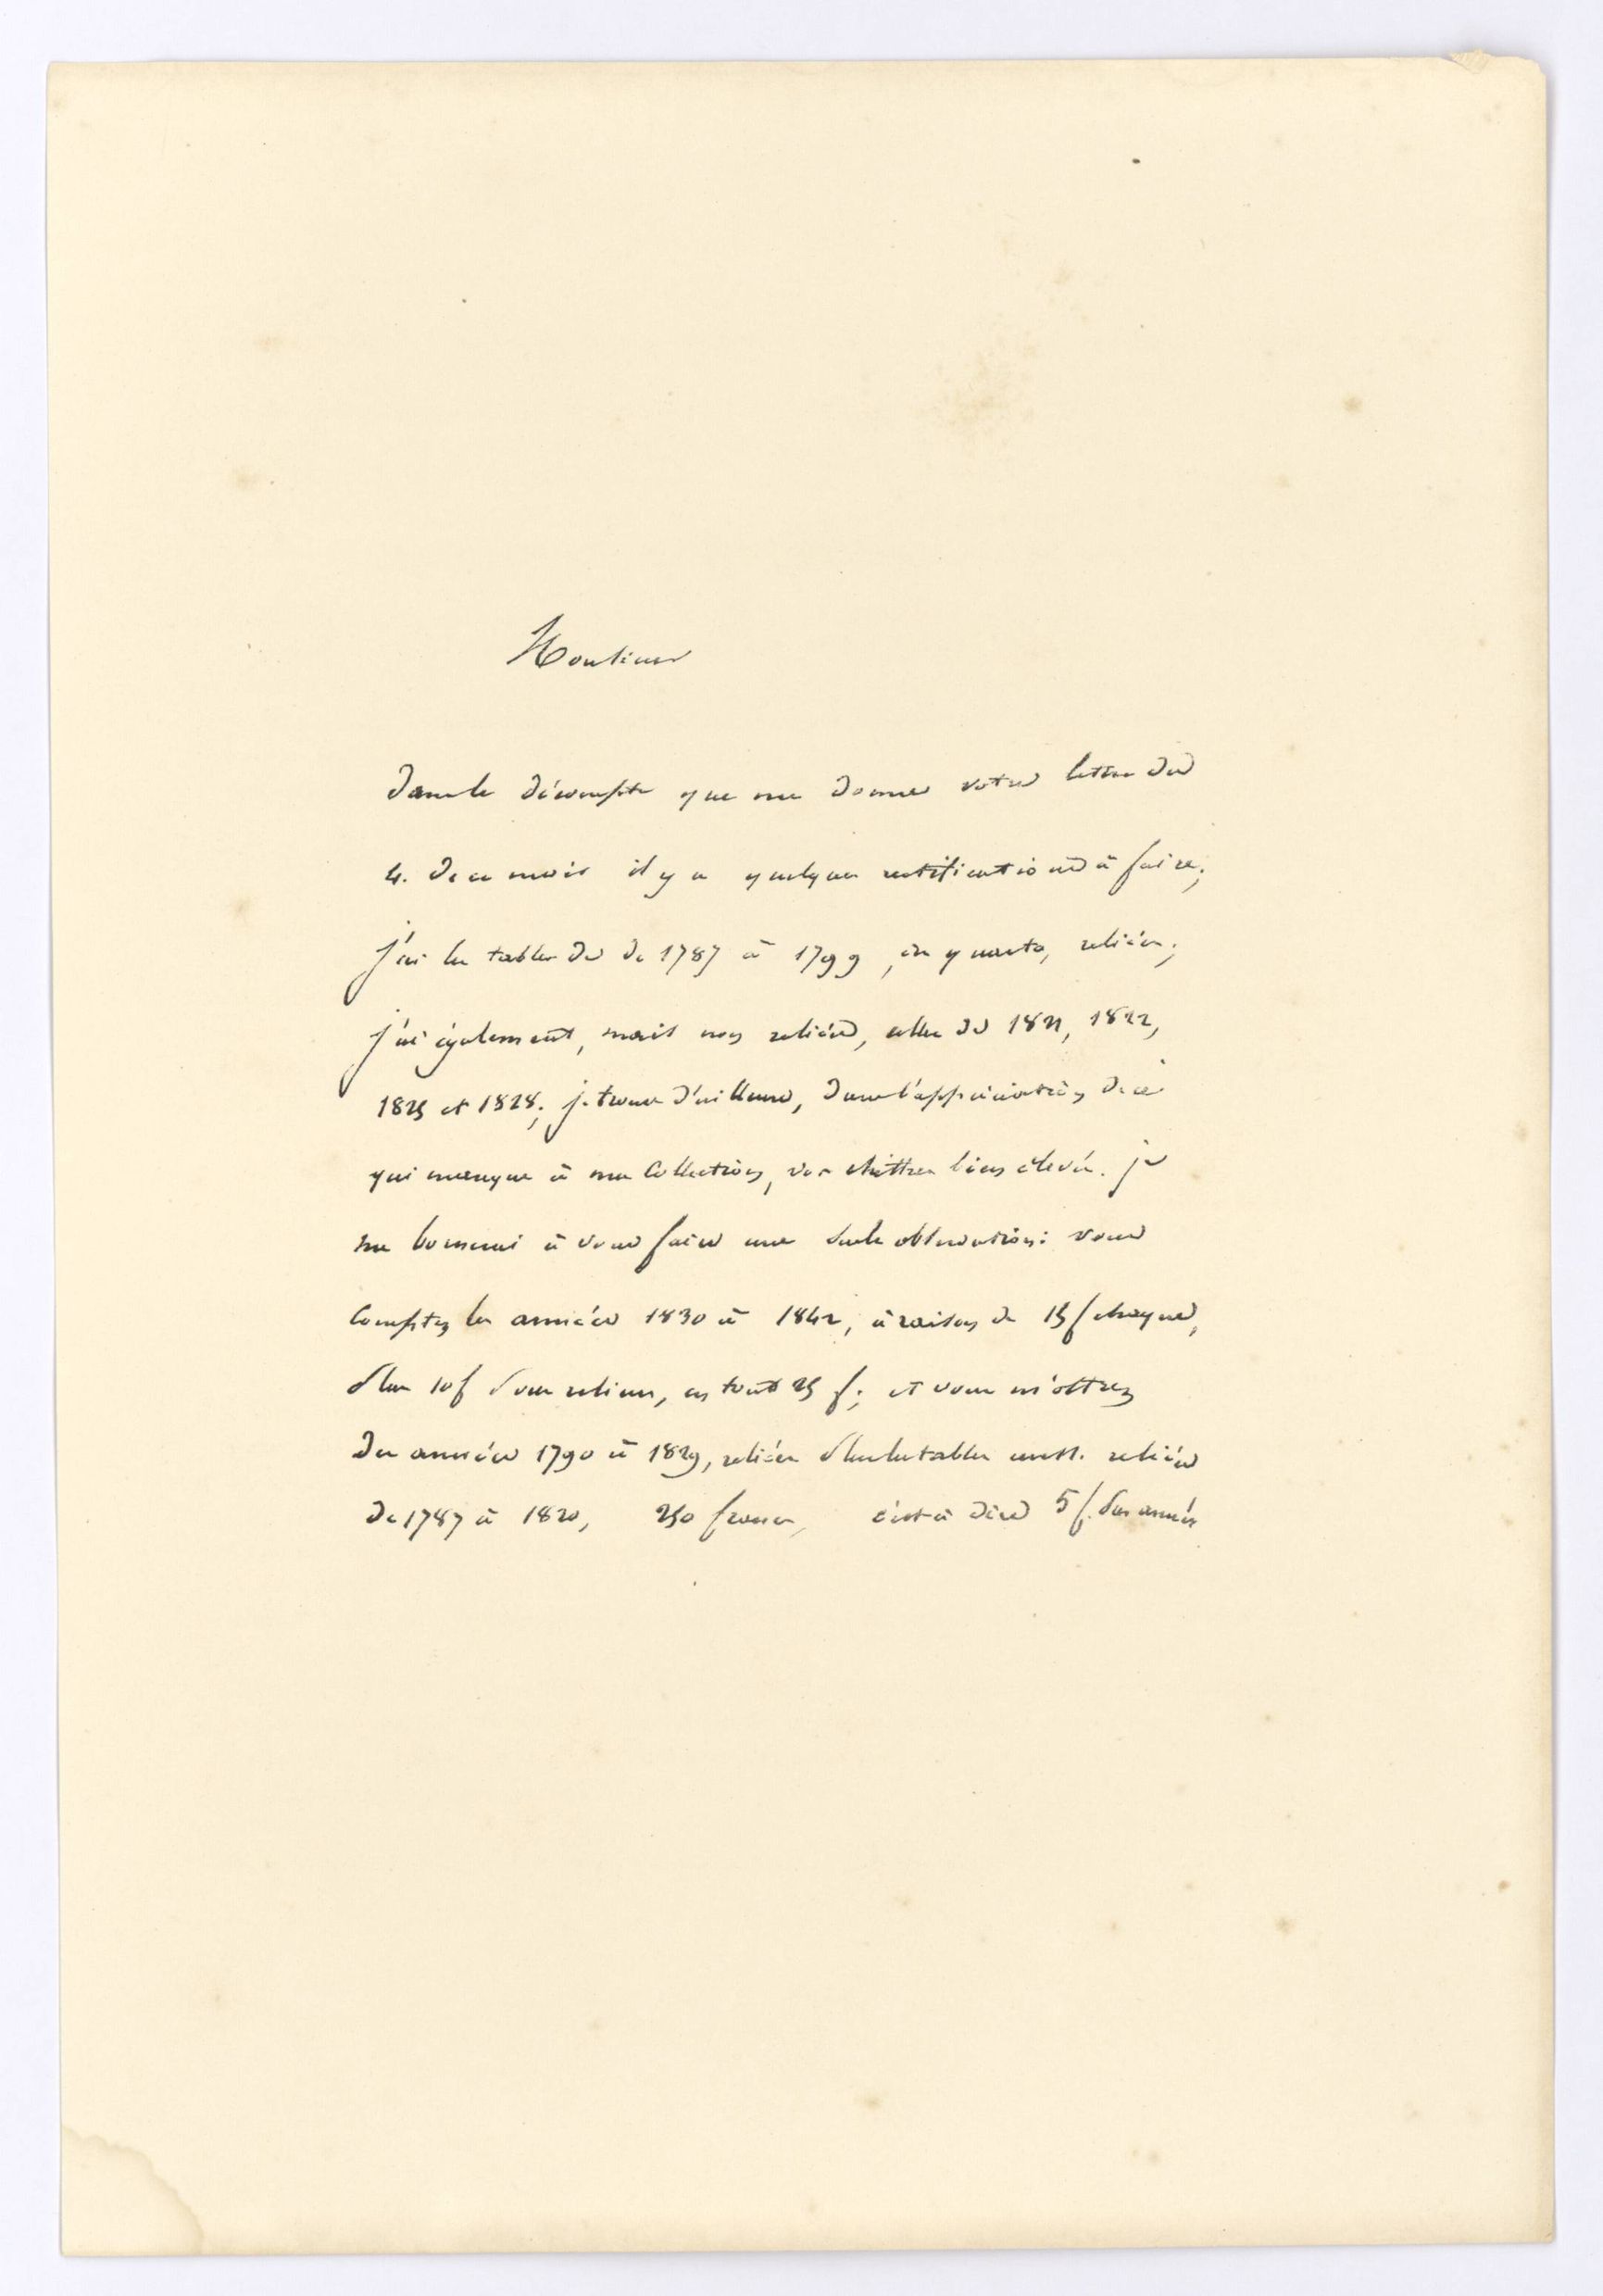 Monsieur
dans le décompte que me donne votre lettre du
4. de ce mois il y a quelques rectifications à faire;
j'ai les tables de 1787 à 1799, in quarto, reliées;
j'ai également, mais non reliées, celles de 1821, 1822,
1825 et 1828; je trouve d'ailleurs, dans l'appréciation de ce
qui manque à ma Collection, vos chiffres bien élevés. je
me bornerai à vous faire une seule observation: vous
Comptez les années 1830 à 1842, à raison de 15 f chaque,
plus 10 f pour reliure, en tout 25 f; et vous m'offrez
des années 1790 à 1829, reliées plus les tables reliées
de 1787 à 1820, 250 francs, c'est à dire 5 f. par année